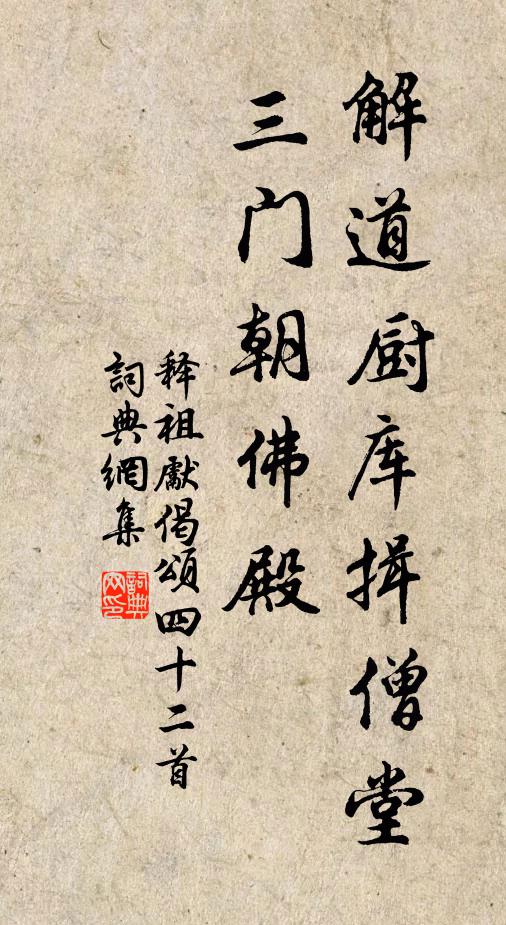 解道厨库揖僧堂
三门朝佛殿
释祖獻偈頌四十二首
詞典網集
詞典
网印